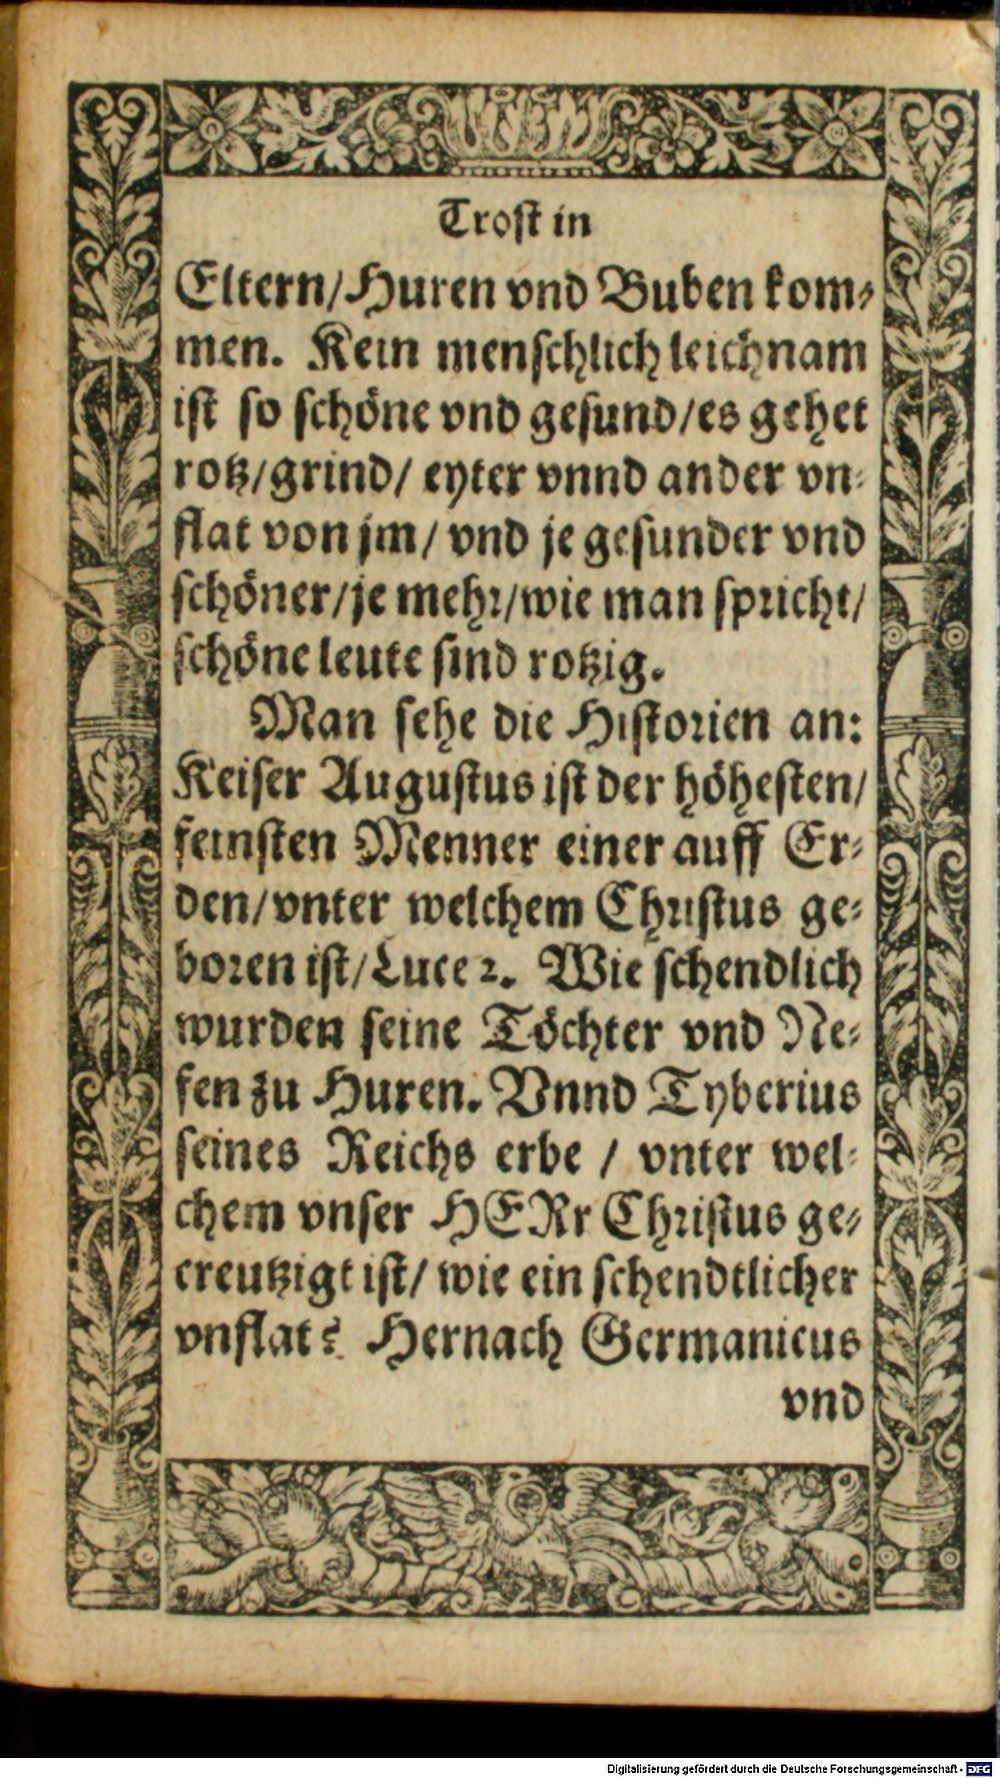 Trost in
Eltern/Huren vnd Buben kom⸗
men. Kein menschlich leichnam
ist so schöne vnd gesund/es gehet
rotz/grind/ eyter vnnd ander vn⸗
flat von jm/ vnd je gesunder vnd
schöner/je mehr/wie man spricht/
schöne leute sind rotzig.
Man sehe die Historien an:
Keiser Augustus ist der höhesten/
feinsten Menner einer auff Er⸗
den/vnter welchem Christus ge⸗
boren ist/Luce 2. Wie schendlich
wurden seine Töchter vnd Ne⸗
fen zu Huren. Vnnd Tyberius
seines Reichs erbe / vnter wel⸗
chem vnser HERr Christus ge⸗
creutzigt ist/ wie ein schendtlicher
vnflat? Hernach Germanicus
vnd
Digitalisierung gefördert durch die Deutsche Forschungsgemeinschaft - DFG